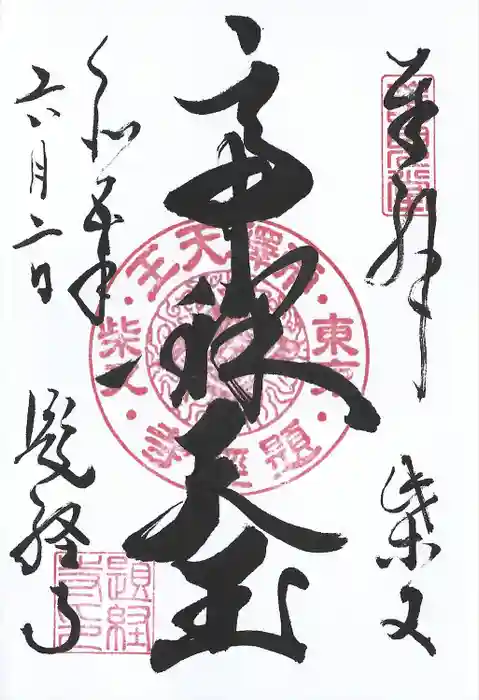 奉拝
柴又
帝釈天王
令和五年
六月二日
題経寺
帝釋天王
東京
題經寺
柴又
題経寺印